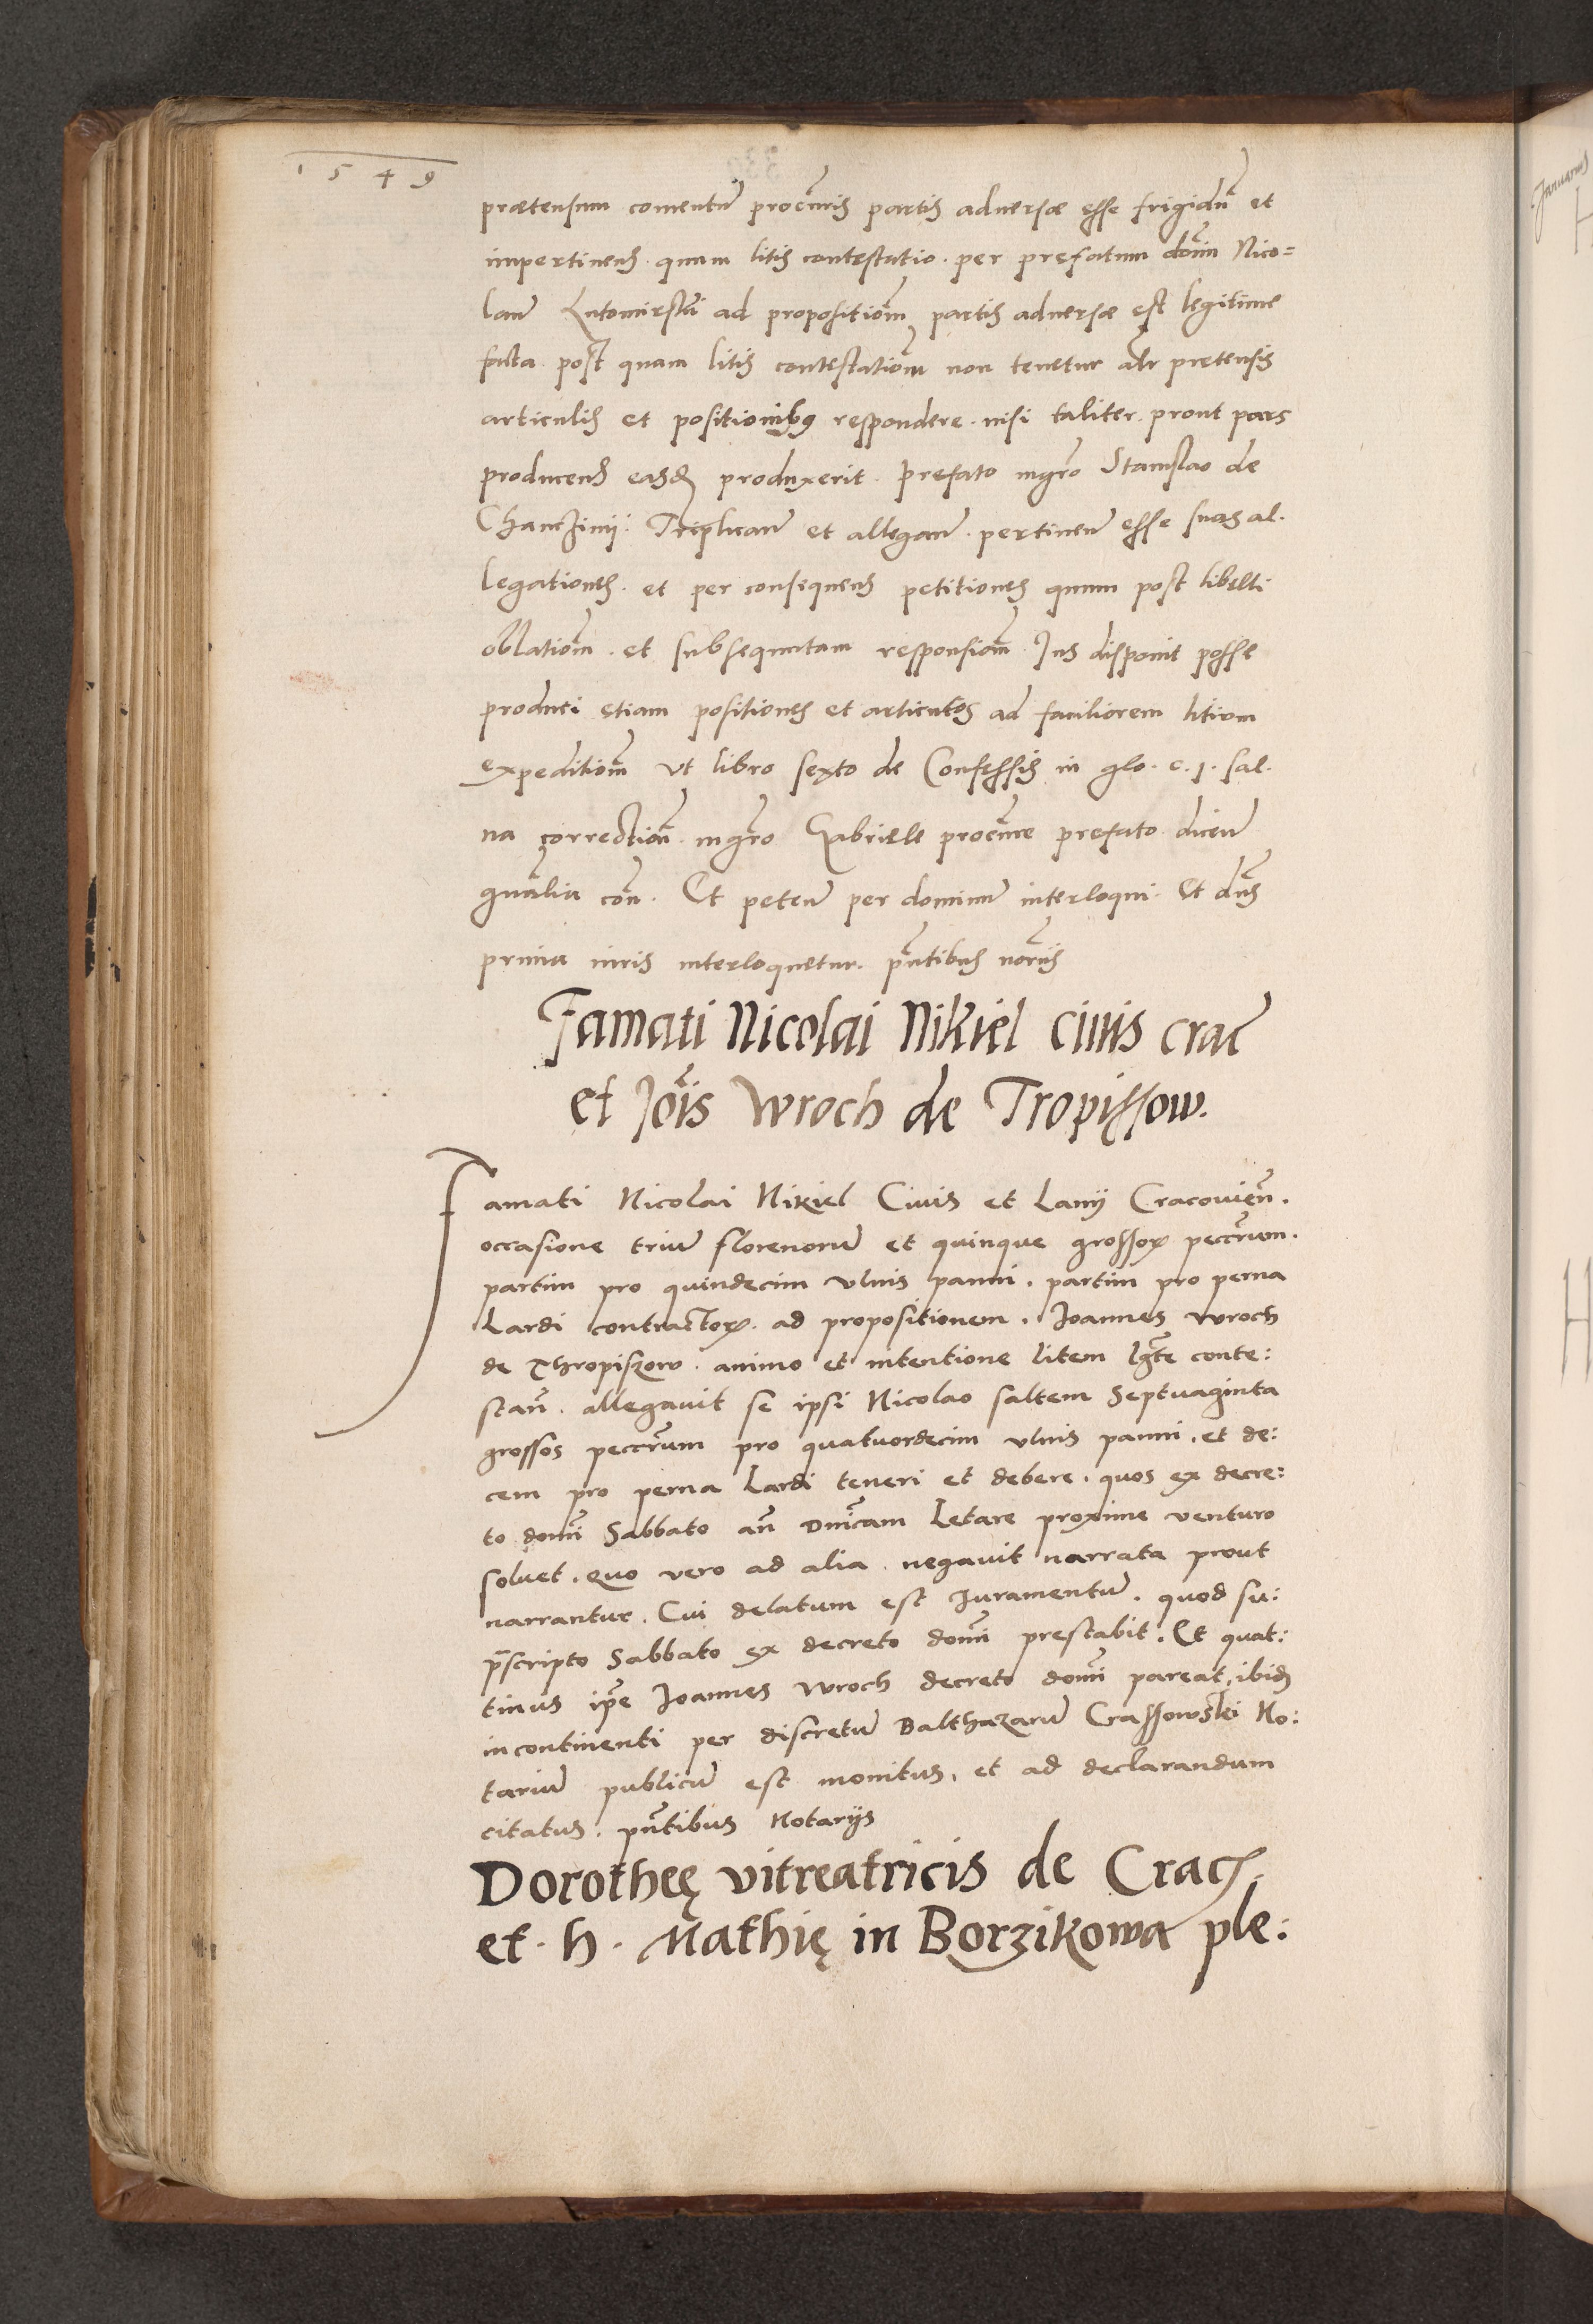 1549
prætensum comentũ procũris partis aduersæ esse frigidũ et
impertinens quum litis contestatio per prefatum domĩ Nico=
laum Lutomirskĩ ad propositionẽ partis aduersæ est legitime
facta post quam litis contestationẽ non tenetur alr̃ pretensis
articulis et positionibus respondere nisi taliter prout pars
producens easdẽ produxerit. Prefato mgr̃o Stanislao de
Chanczinij Triplicanẽ et alleganẽ pertinenẽ esse suas al.
legationes. et per consequens petitiones quum post libelli
oblationẽ et subsequutam responsionẽ Jus disponit posse
produci etiam positiones et articulos ad faciliorem litium
expeditionẽ ut libro sexto de Confessis in glo. c. 1. sal.
na correctionẽ mgr̃o Gabriele procũre prefato dicenẽ
gñalia con̄. Et petenẽ per dominum interloqui. Et dñs
prima iuris interloquetur. pñtibus notariis
Famati Nicolai Nikiel ciuis crac̃
et Joĩs Wroch de Tropissow.
Famati Nicolai Nikiel Ciuis et Lanij Cracovieñ.
occasione triũ florenorũ et quinque grossorꝝ peccr̃um.
partim pro quindecim ulnis panni. partim pro perna
Lardi contractorꝝ. ad propositionem. Joannes Wroch
de Thropiszow. animo et intentione litem lgt̃e conte:
stañ. allegauit se ipsi Nicolao saltem Septuaginta
grossos peccr̃um pro quatuordecim ulnis panni. et de:
cem pro perna Lardi teneri et debere. quos ex decre:
to domĩ Sabbato añ Dnĩcam Letare proxime venturo
soluet. Quo vero ad alia. negauit narrata prout
narrantur. Cui delatum est Juramentũ. quod su:
p̃scripto Sabbato ex decreto domĩ prestabit. Et quat:
tinus ip̃e Joannes Wroch decreto domĩ pareat. ibidẽ
incontinenti per discretũ Balthazarũ Crassowski No:
tariũ publicũ est monitus. et ad declarandum
citatus. pñtibus Notarijs
Dorotheę vitreatricis de Crac̃.
et. h. Mathię in Borzikowa ple: